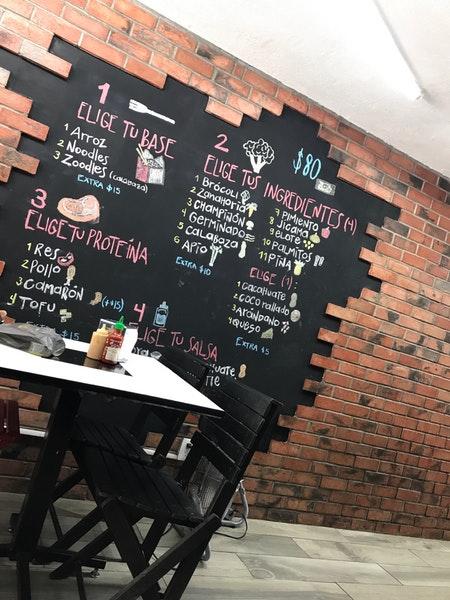 1
ELIGE TU BASE
1 Arroz
2 Noodles
3 Zoodles (calabaza)
EXTRA $15
2
ELIGE TUS INGREDIENTES (4)
$80
1 BRÓCOLI
2 Zanahoria
3 CHAMPIÑÓN
4 Germinado
5 calabaza
6 Apio
EXTRA $10
7 PIMIENTO
8 Jícama
9 eLOTe
10 PALMITOS
11 PIÑA
ELIGE (1):
1 cacahuate
2 coco rallado
3 Arándano
4 queso
EXTRA $5
3
ELIGE TU PROTEÍNA
1 Res
2 Pollo
3 CAMARÓN (+$15)
4 TOFU
4
ELIGE TU SALSA